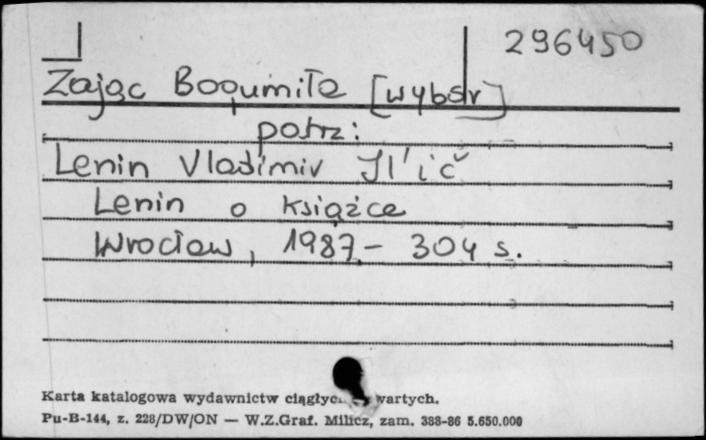 296450
Zając Bogumiła [wybór]
patrz:
Lenin Vladimir Il'ič
Lenin o książce
Wrocław, 1987. - 304 s.
Karta katalogowa wydawnictw ciągłyc wartych.
Pu-B-144, z. 228/DW/ON — W.Z.Graf. Milicz, zam. 388-86 5.650.000